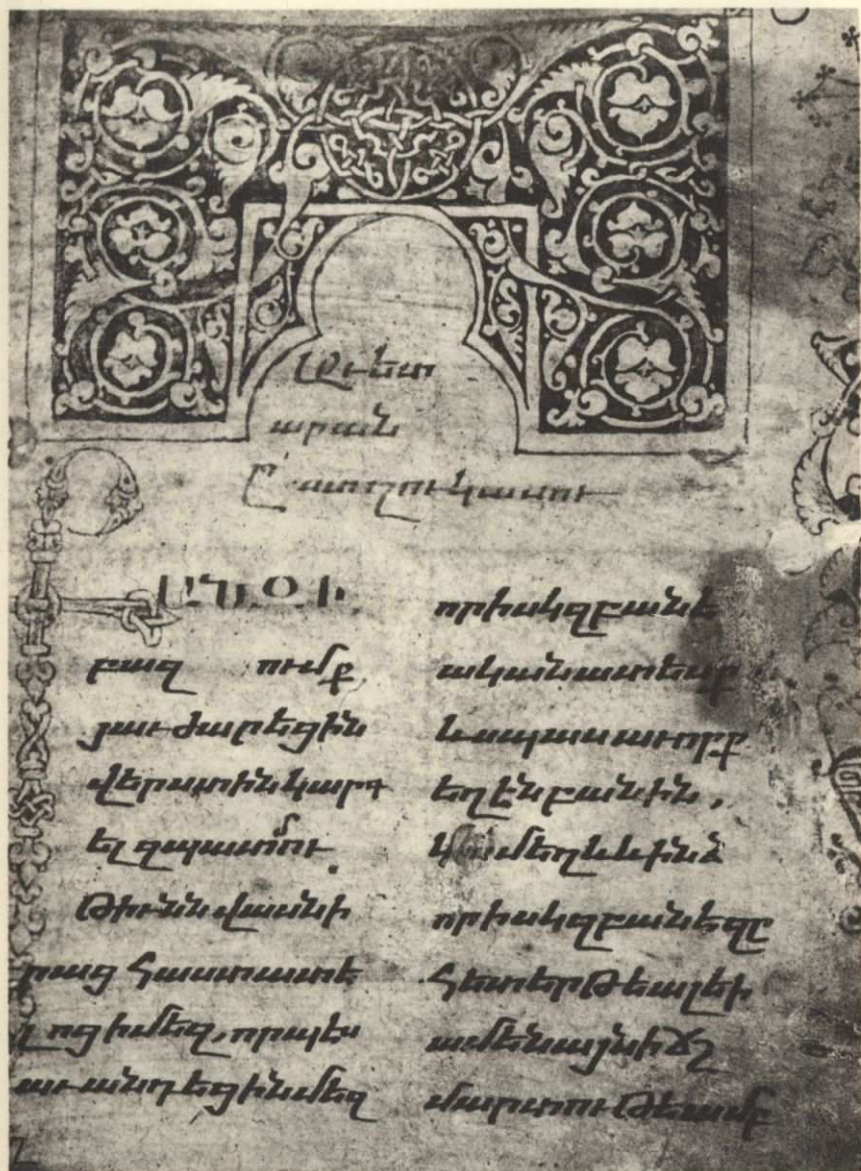 Աւետ
արան
ըստ ղուկասու
ՔԱՆԶԻ
բազ ումք
յաւժարեցին
վերստին կարգ
ել զպատմու
թիւնն վասն ի
րաց հաստատե
լոց ի մեզ, որպէս
աւանդեցին մեզ
որ ի սկզբանէ
ականատեսք
և սպասաւորք
եղէն բանին,
կամ եղև և ինձ
որ ի սկզբանե զը
հետ երթեալ էի
ամենայնի ճշ
մարտութեամբ